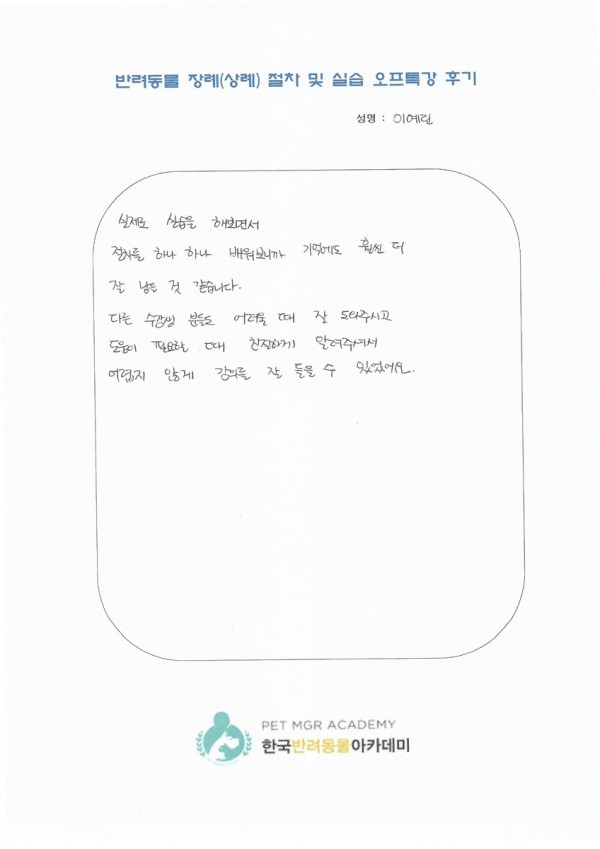 반려동물 장례(상례) 절차 및 실습 오프특강 후기
성명 : 이예린
실제로 실습을 해보면서
절차를 하나 하나 배워보니까 기억에도 훨씬 더
잘 남은 것 같습니다.
다른 수강생 분들도 어려울 때 잘 도와주시고
도움이 필요할 때 친절하게 알려주셔서
어렵지 않게 강의를 잘 들을 수 있었어요.
PET MGR ACADEMY
한국반려동물아카데미